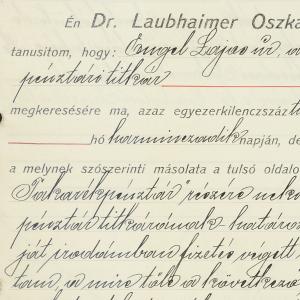 Én Dr. Laubhaimer Oszka
tanusitom, hogy: Engel Lajos úr, a
pénztári titkár
megkeresésére ma, azaz egyezerkilenczszáz
hó harminczadik napján, de
a melynek szószerinti másolata a tulsó oldalo
Takarékpénztár" részére nek
pénztár titkárának határoz
ját irodámban fizetés végett
tam, a mire tőle a következő